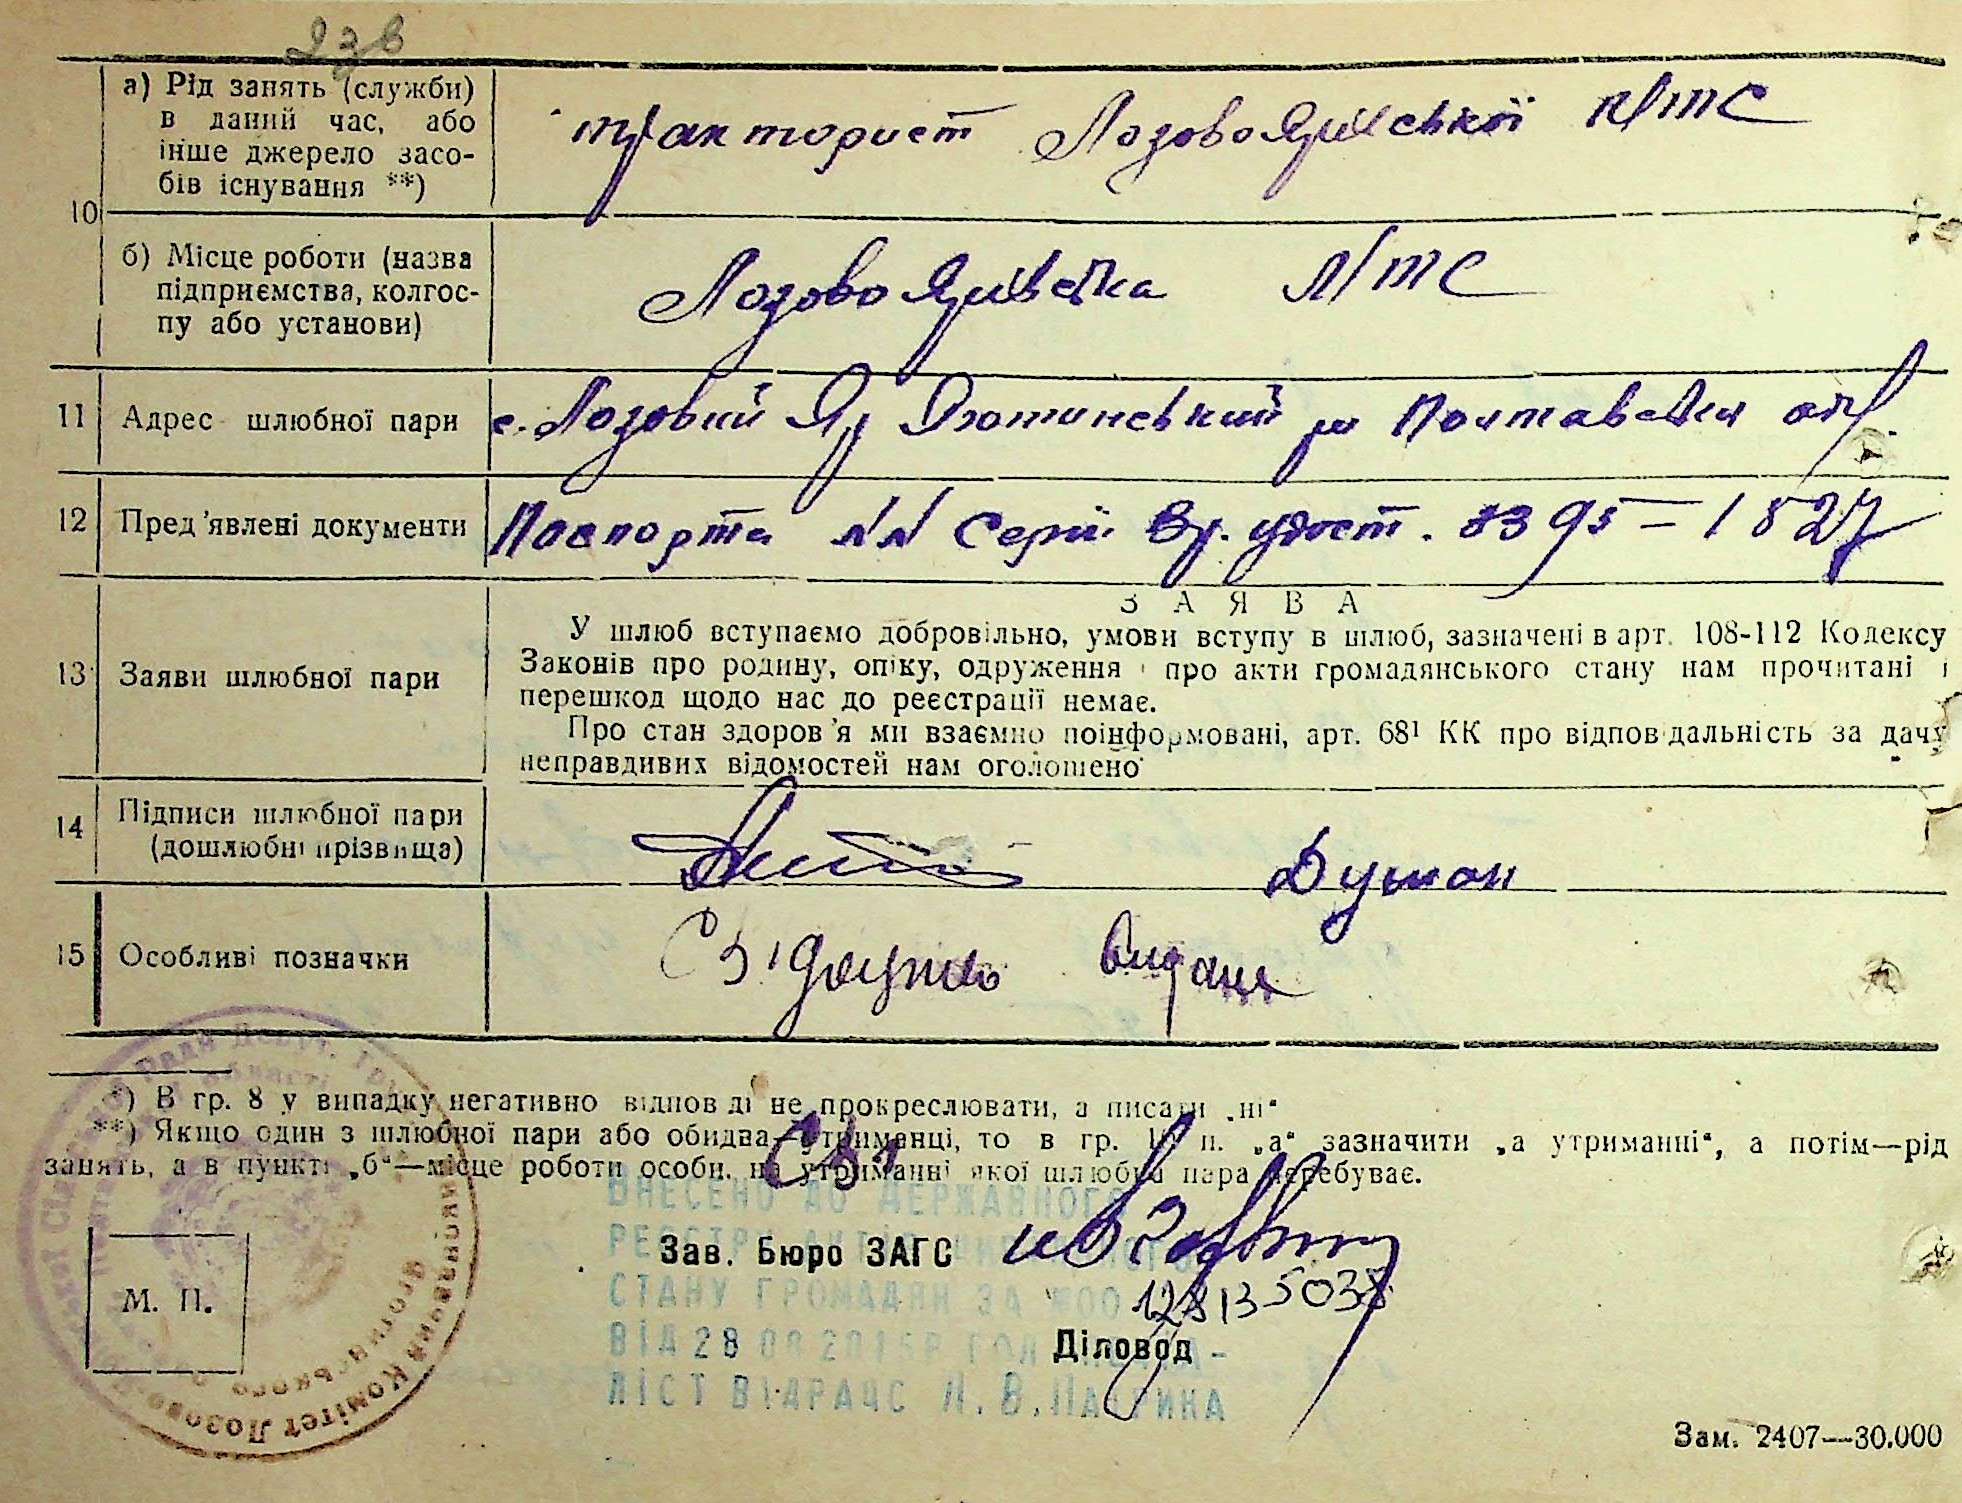 23в
а) Рід занять (служби)
в даний час, або
інше джерело засо-
бів існування **)
тракторист Лозовоярівської МТС
10
б) Місце роботи (назва
підприємства, колгос-
пу або установи)
Лозово Ярівська МТС
11 Адрес шлюбної пари с. Лозовий Яр Яготинський р-н Полтавська обл.
12 Пред'явлені документи Паспорта №№ Серії Вр. удост. 8395-1827
ЗАЯВА
13 Заяви шлюбної пари
У шлюб вступаємо добровільно, умови вступу в шлюб, зазначені в арт. 108-112 Кодексу
Законів про родину, опіку, одруження і про акти громадянського стану нам прочитані і
перешкод щодо нас до реєстрації немає.
Про стан здоров'я ми взаємно поінформовані, арт. 68¹ КК про відповідальність за дачу
неправдивих відомостей нам оголошено
14 Підписи шлюбної пари
(дошлюбні прізвища)
15 Особливі позначки
видане
*) В гр. 8 у випадку негативно відповіді не прокреслювати, а писати „ні“
**) Якщо один з шлюбної пари або обидва—утриманці, то в гр. 10 п. „а“ зазначити „а утриманні“, а потім—рід
занять, а в пункті „б“—місце роботи особи, на утриманні якої шлюбна пара перебуває.
ВНЕСЕНО ДО ДЕРЖАВНОГО
РЕЄСТРУ АКТІВ ЦИВІЛЬНОГО
СТАНУ ГРОМАДЯН ЗА №00
128135038
Зав. Бюро ЗАГС
Діловод
М. П.
Виконавчий Комітет Лозово
Яготинського
Зам. 2407—30.000